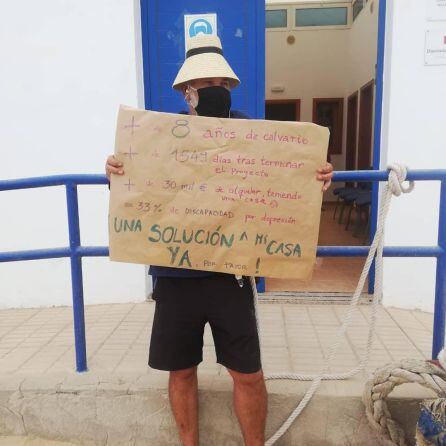 + de 8 años de calvario
+ de 1549 días tras terminar
el proyecto
+ de 30 mil € de alquiler, teniendo
una (casa
= 33% de DISCAPACIDAD por depresión
UNA SOLUCIÓN A MI CASA
YA, POR FAVOR !